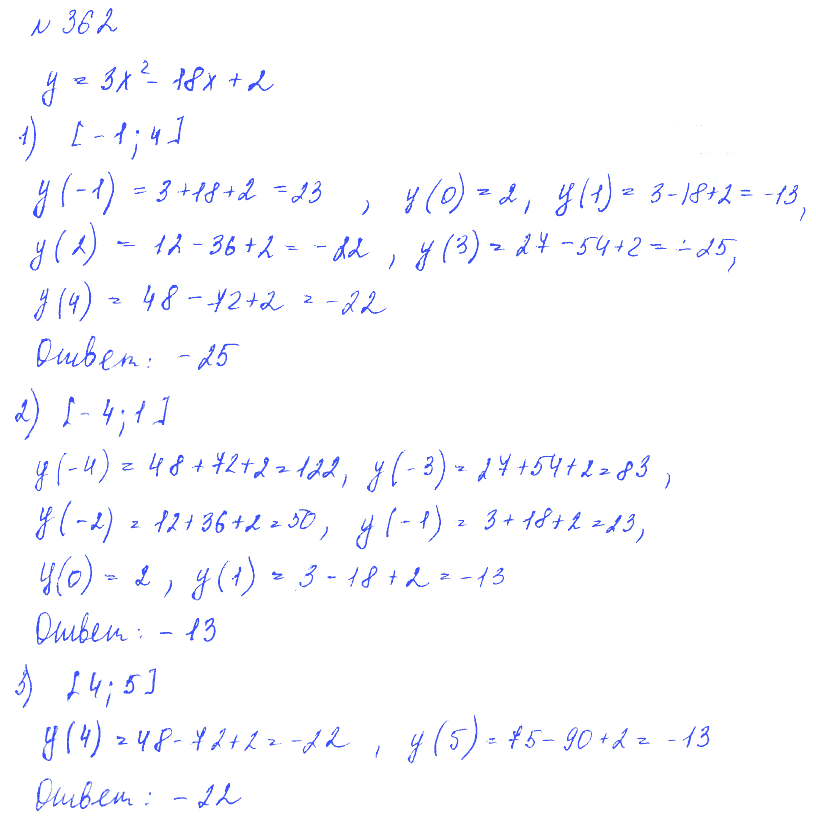 № 362
y = 3x² - 18x + 2
1) [-1; 4]
y(-1) = 3+18+2 = 23 , y(0) = 2, y(1) = 3-18+2 = -13,
y(2) = 12-36+2 = -22 , y(3) = 27-54+2 = -25,
y(4) = 48-72+2 = -22
Ответ: -25
2) [-4; 1]
y(-4) = 48+72+2 = 122, y(-3) = 27+54+2 = 83 ,
y(-2) = 12+36+2 = 50, y(-1) = 3+18+2 = 23,
y(0) = 2 , y(1) = 3-18+2 = -13
Ответ: -13
3) [4; 5]
y(4) = 48-72+2 = -22 , y(5) = 75-90+2 = -13
Ответ: -22